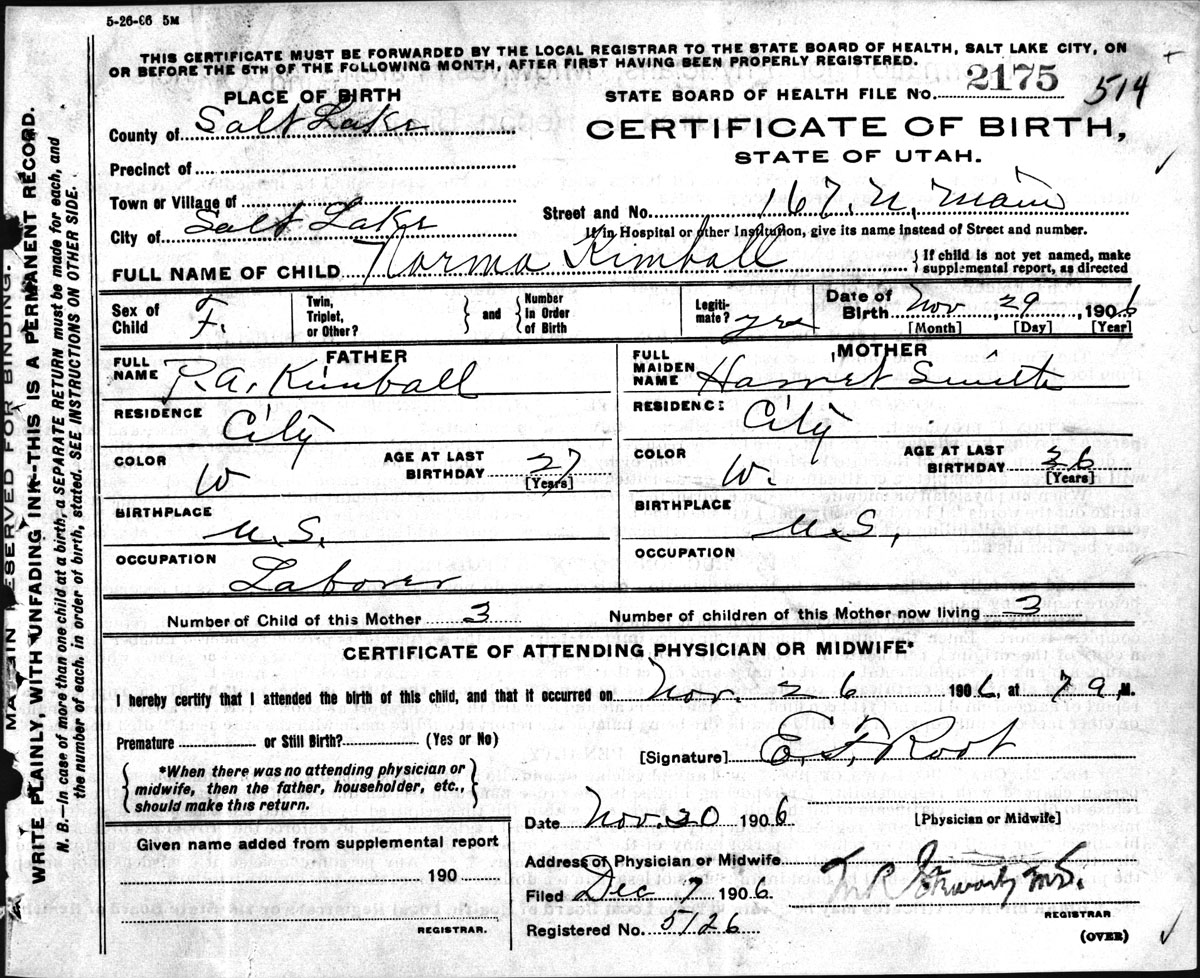 5-26-06 5M
THIS CERTIFICATE MUST BE FORWARDED BY THE LOCAL REGISTRAR TO THE STATE BOARD OF HEALTH, SALT LAKE CITY, ON
OR BEFORE THE 5TH OF THE FOLLOWING MONTH, AFTER FIRST HAVING BEEN PROPERLY REGISTERED.
PLACE OF BIRTH
STATE BOARD OF HEALTH FILE NO. 2175 514
County of Salt Lake
CERTIFICATE OF BIRTH,
STATE OF UTAH.
Precinct of
Town or Village of
Street and No. 167. N. Main
City of Salt Lake
If in Hospital or other Institution, give its name instead of Street and number.
FULL NAME OF CHILD Norma Kimball
If child is not yet named, make
supplemental report, as directed
Sex of Child F.
Twin, Triplet, or Other?
and
Number In Order of Birth
Legitimate? yes
Date of Birth Nov, 29, 1906
[Month] [Day] [Year]
FATHER
FULL NAME P. A. Kimball
RESIDENCE City
COLOR W
AGE AT LAST BIRTHDAY 27
[Years]
BIRTHPLACE U. S.
OCCUPATION Laborer
MOTHER
FULL MAIDEN NAME Harriet Smith
RESIDENCE City
COLOR W.
AGE AT LAST BIRTHDAY 26
[Years]
BIRTHPLACE U. S,
OCCUPATION
Number of Child of this Mother 3 Number of children of this Mother now living 3
CERTIFICATE OF ATTENDING PHYSICIAN OR MIDWIFE*
I hereby certify that I attended the birth of this child, and that it occurred on Nov 26 1906, at 7 a, M.
Premature or Still Birth? (Yes or No)
[Signature] E. F. Root
*When there was no attending physician or
midwife, then the father, householder, etc.,
should make this return.
Date Nov. 30 1906
[Physician or Midwife]
Given name added from supplemental report
190
REGISTRAR.
Address of Physician or Midwife
Filed Dec 7 1906
Registered No. 5126
REGISTRAR
(OVER)
MARGIN RESERVED FOR BINDING.
WRITE PLAINLY, WITH UNFADING INK--THIS IS A PERMANENT RECORD.
N. B.--In case of more than one child at a birth, a SEPARATE RETURN must be made for each, and
the number of each, in order of birth, stated. SEE INSTRUCTIONS ON OTHER SIDE.